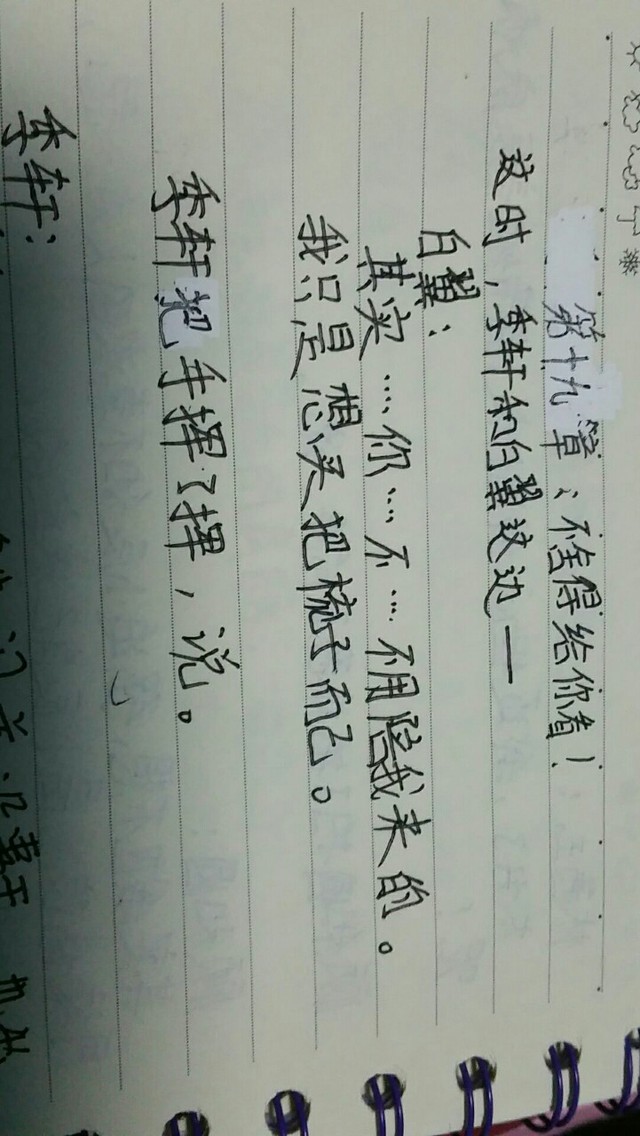 第十九章:不舍得给你看!
这时,季轩和白翼这边——
白翼:
其实....你....不....不用陪我来的。
我只是想买把梳子而已。
季轩把手挥了挥,说。
季轩: